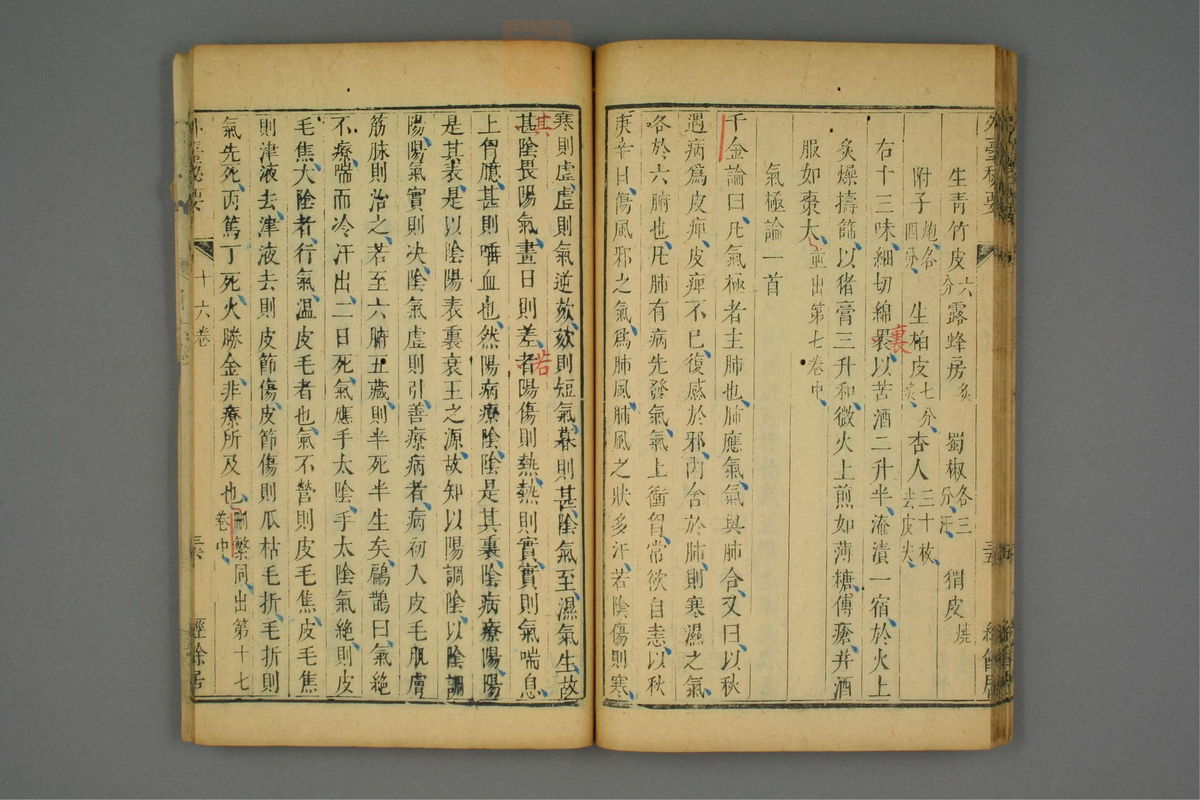 生青竹皮六分露蜂房炙蜀椒各三分汗猬皮燒
附子炮各四分生柏皮七分炙杏人三十枚去皮尖
右十三味細切綿褁以苦酒二升半淹漬一宿於火上
裏
炙燥擣篩以猪膏三升和微火上煎如薄糖傅瘡并酒
服如棗大並出第七卷中
氣極論一首
千金論曰凡氣極者主肺也肺應氣氣與肺合又曰以秋
遇病爲皮痺皮痺不已復感於邪內舍於肺則寒濕之氣
客於六腑也凡肺有病先發氣氣上衝胷常欲自恚以秋
庚辛日傷風邪之氣爲肺風肺風之狀多汗若陰傷則寒
寒則虛虛則氣逆欬欬則短氣暮則甚陰氣至濕氣生故
其
甚陰畏陽氣晝日則差者陽傷則熱熱則實實則氣喘息
若
上胷臆甚則嗌血也然陽病療陰陰是其裏陰病療陽陽
是其表是以陰陽表裏衰王之源故知以陽調陰以陰調
陽陽氣實則决陰氣虛則引善療病者病初入皮毛肌膚
筋脉則治之若至六腑五藏則半死半生矣鶣鵲曰氣絕
不療喘而冷汗出二日死氣應手太陰手太陰氣絕則皮
毛焦大陰者行氣溫皮毛者也氣不營則皮毛焦皮毛焦
則津液去津液去則皮節傷皮節傷則爪枯毛折毛折則
氣先死丙篤丁死火勝金非療所及也刪繁同出第十七
卷中
外臺秘要
十六卷
三六
經餘居